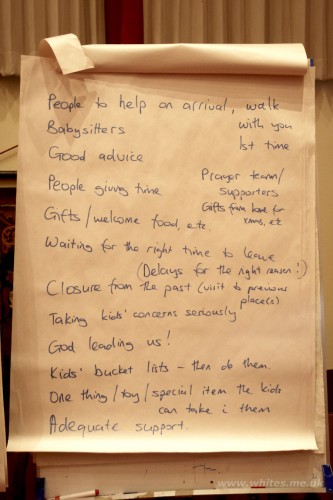 People to help on arrival, walk
with you
1st time
Babysitters
Good advice
People giving time
Prayer team/
supporters
Gifts from home for
xmas, etc
Gifts/welcome food, etc.
Waiting for the right time to leave
(Delays for the right reason!)
Closure from the past (visit to previous
place(s)
Taking kids' concerns seriously
God leading us!
Kids' bucket lists - then do them.
One thing/toy/special item the kids
can take c̄ them
Adequate support.
www.whites.me.uk